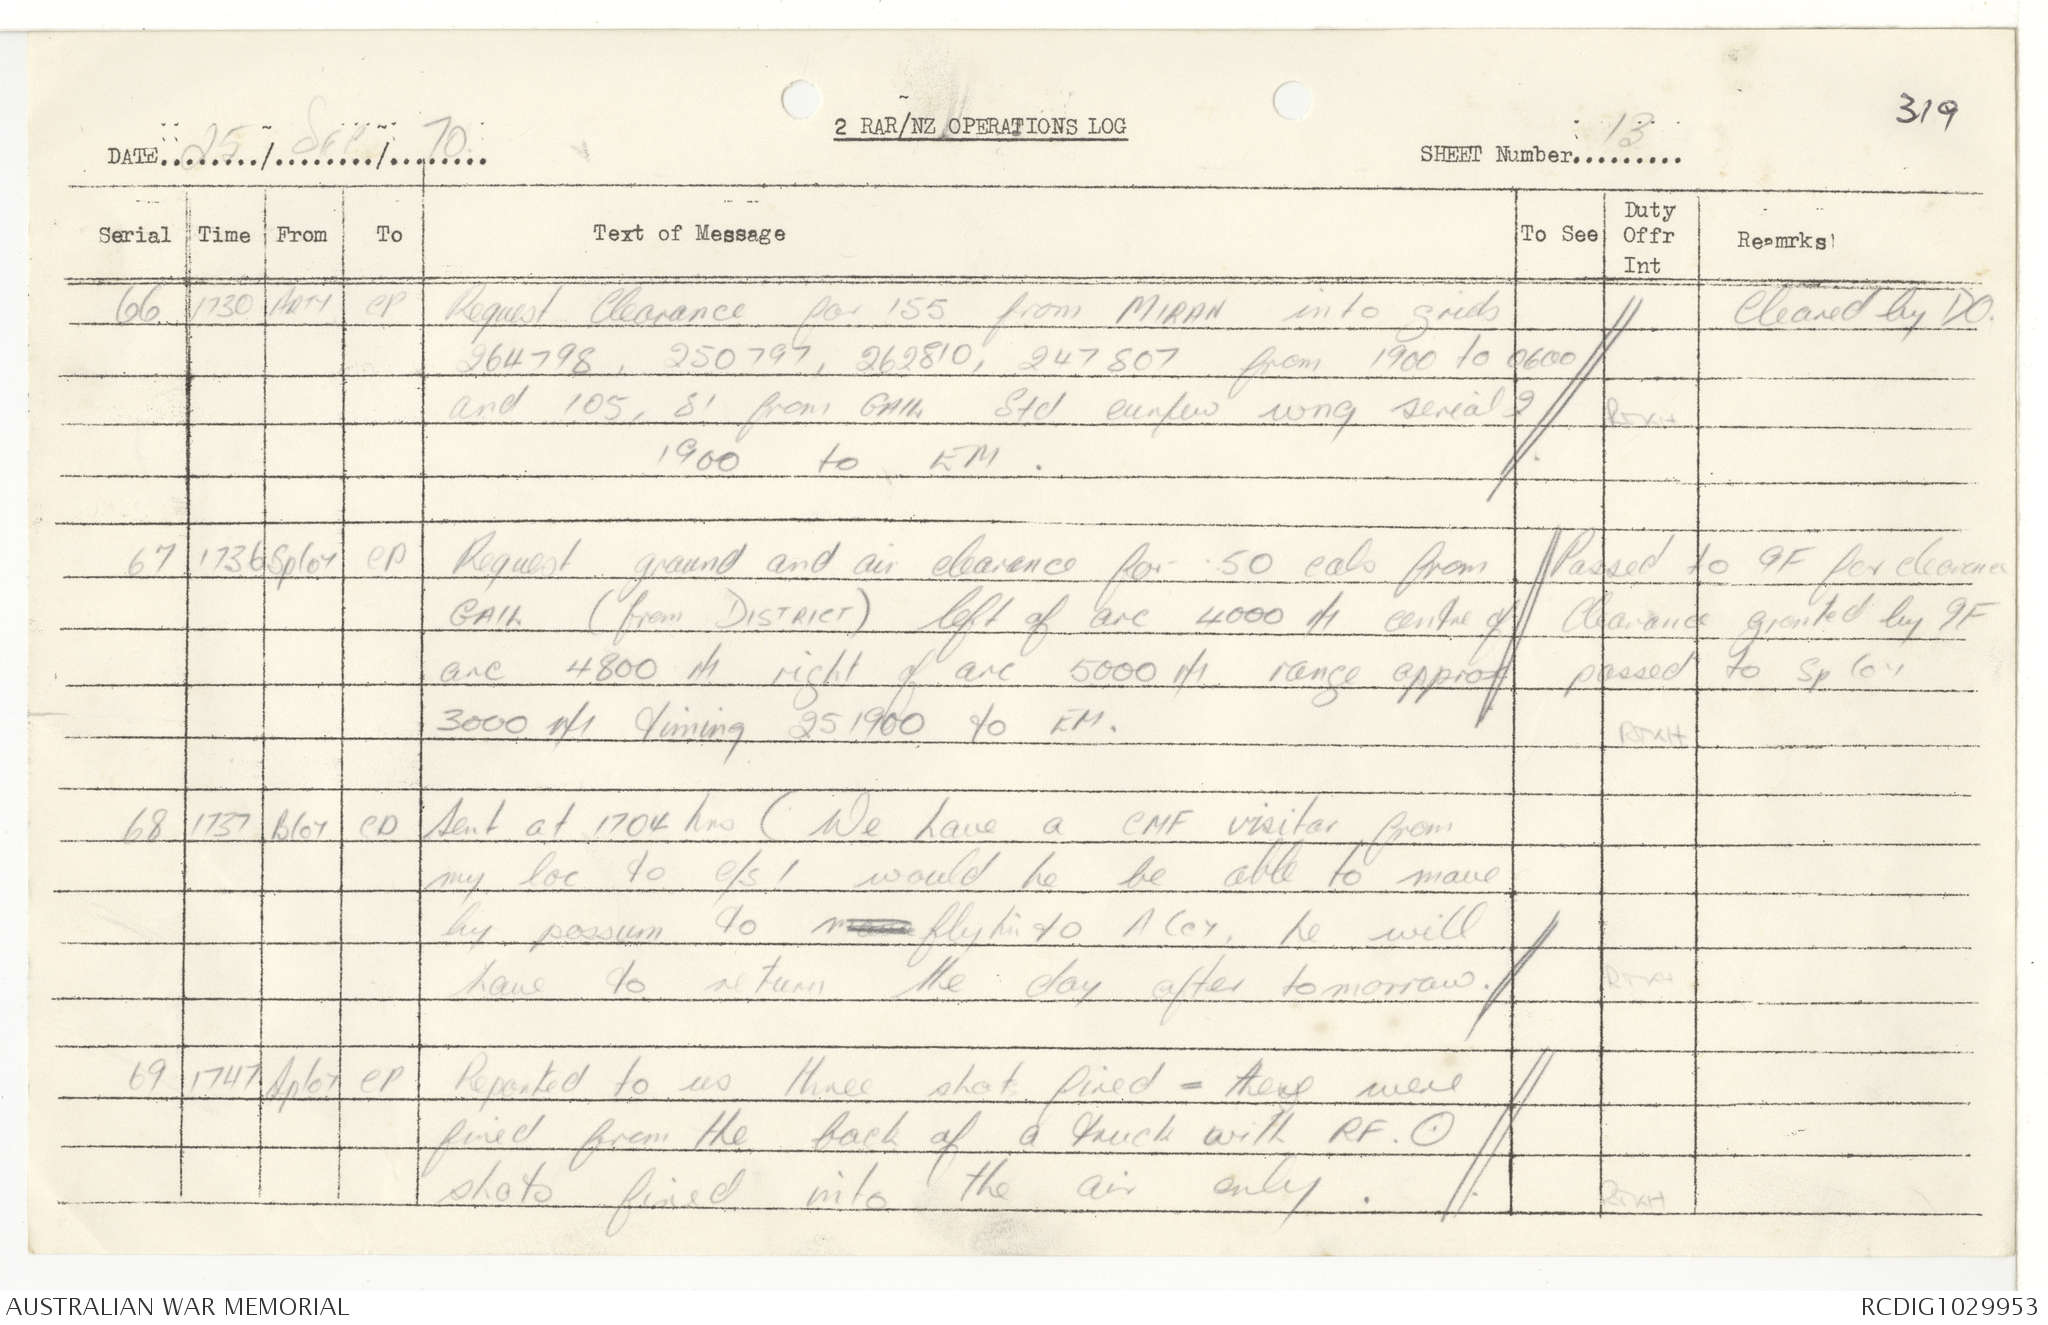 319
2 RAR/NZ OPERATIONS LOG
DATE 25 / Sep / 70
SHEET Number 13
Serial Time From To Text of Message To See Duty Offr Int Remrks
66 1730 Arty CP Request Clearance for 155 from MIRAN into grids Cleared by DO.
264798, 250797, 262810, 247807 from 1900 to 0600
and 105, 81 from GAIL Std curfew wng serial 2 RJKH
1900 to EM.
67 1736 Sp Coy CP Request ground and air clearance for .50 cals from Passed to 9F for clearance
GAIL (from DISTRICT) left of arc 4000 M centre of Clearance granted by 9F
arc 4800 M right of arc 5000 M range approx passed to Sp Coy
3000 M timing 251900 to EM. RJKH
68 1737 B Coy CP Sent at 1704 hrs (We have a CMF visitor from
my loc to c/s 1 would he be able to move
by possum to fly into A Coy, he will
have to return the day after tomorrow. RJKH
69 1747 A Coy CP Reported to us three shots fired = these were
fired from the back of a truck with RF.
shots fired into the air only. RJKH
AUSTRALIAN WAR MEMORIAL
RCDIG1029953